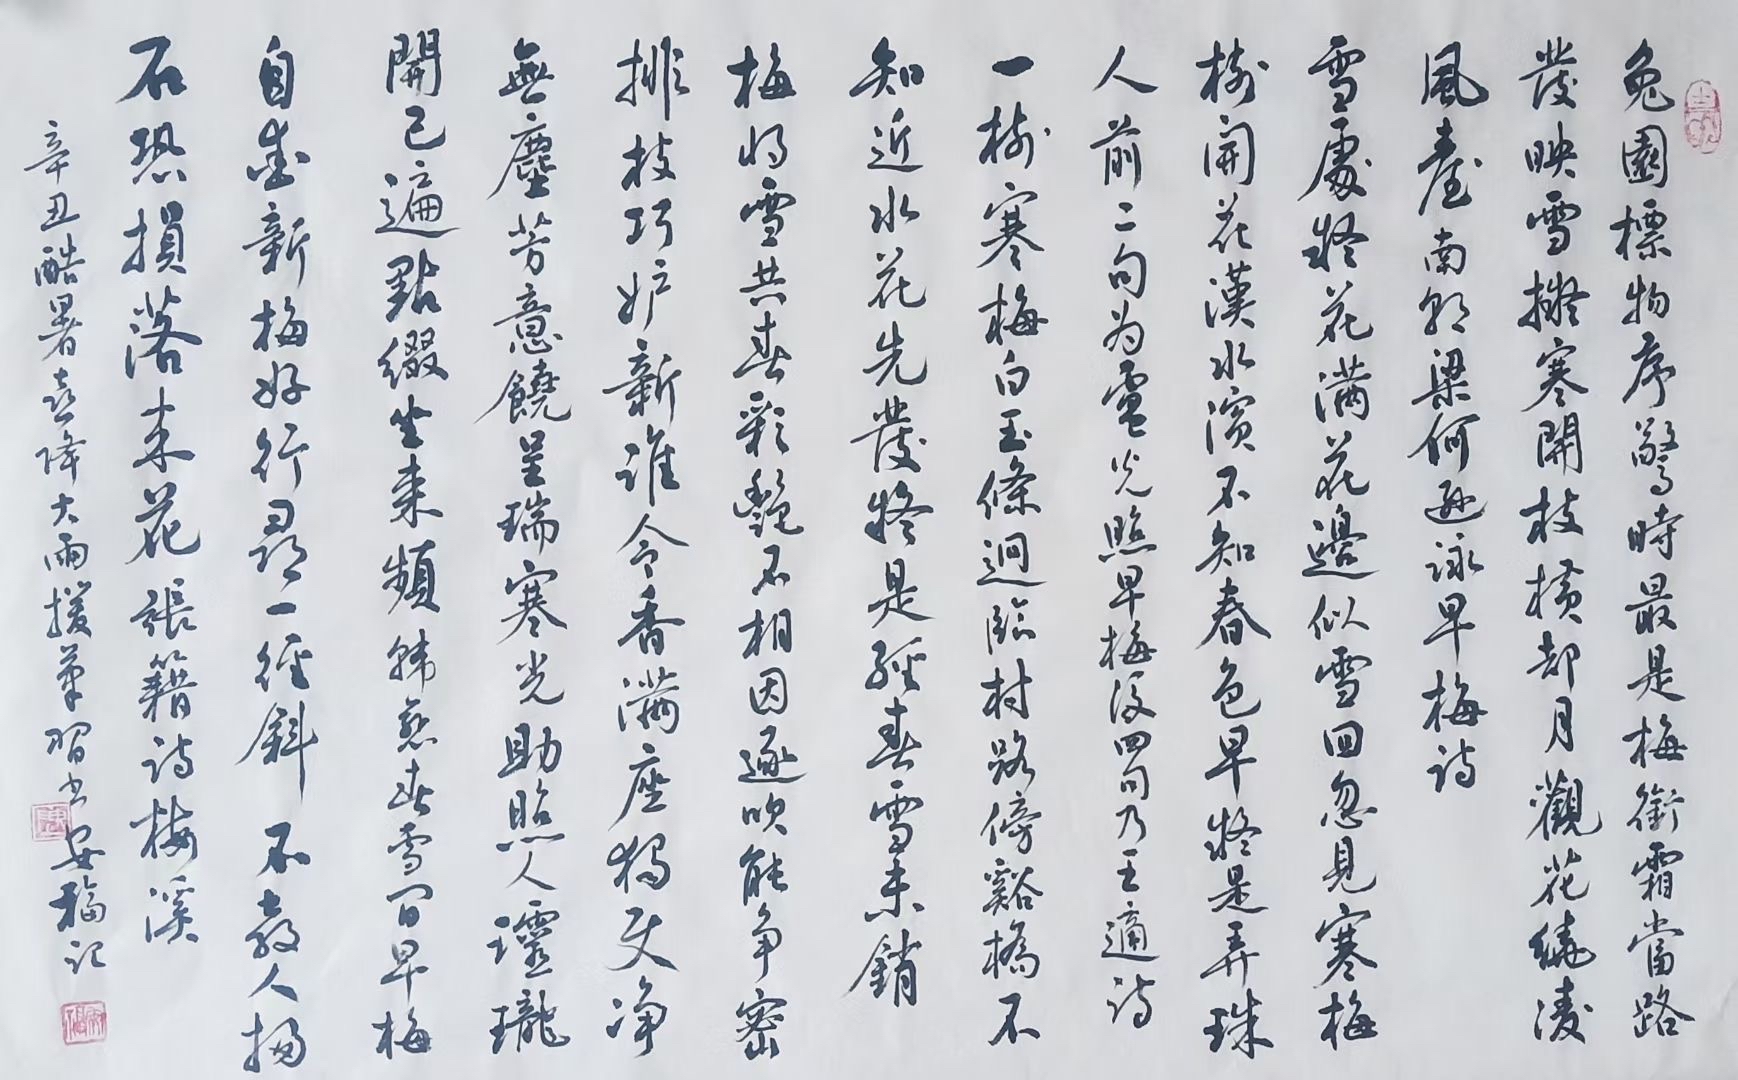 兔園標物序驚時最是梅銜霜當路
發映雪擬寒開枝橫却月觀花繞凌
風臺南朝梁何遜詠早梅詩
雪處疑花滿花邊似雪回忽見寒梅
樹開花漢水濱不知春色早疑是弄珠
人前二句为盧照早梅後四句乃王適詩
一樹寒梅白玉條迥臨村路傍谿橋不
知近水花先發疑是經春雪未銷
梅將雪共春彩艷不相因逐吹能争密
排枝巧妒新誰令香滿座獨使净
無塵芳意饒呈瑞寒光助照人瓏
開已遍點綴坐來頻韩愈春雪間早梅
自愛新梅好行尋一徑斜不教人掃
石恐損落来花張籍诗梅溪
辛丑酷暑喜降大雨援筆習书安福记